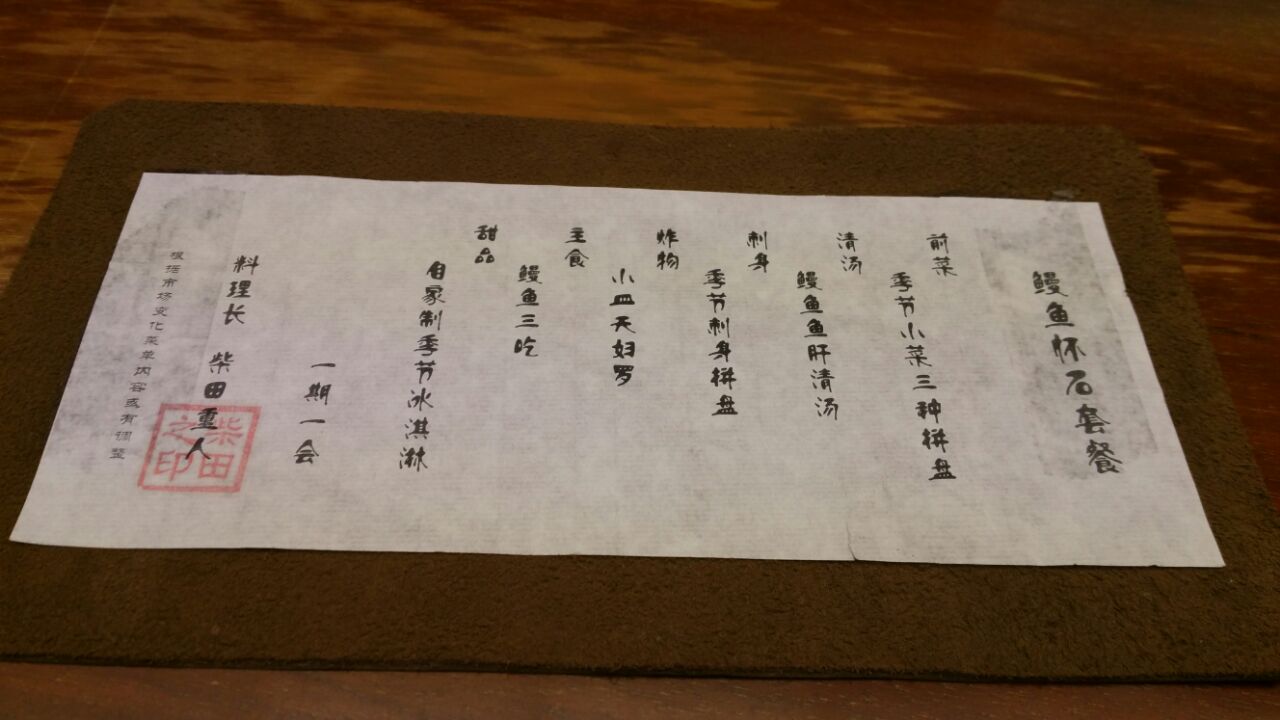 鳗鱼怀石套餐
前菜
季节小菜三种拼盘
清汤
鳗鱼鱼肝清汤
刺身
季节刺身拼盘
炸物
小皿天妇罗
主食
鳗鱼三吃
甜品
自家制季节冰淇淋
一期一会
料理长 柴田重人
柴田之印
根据市场变化菜单内容或有调整